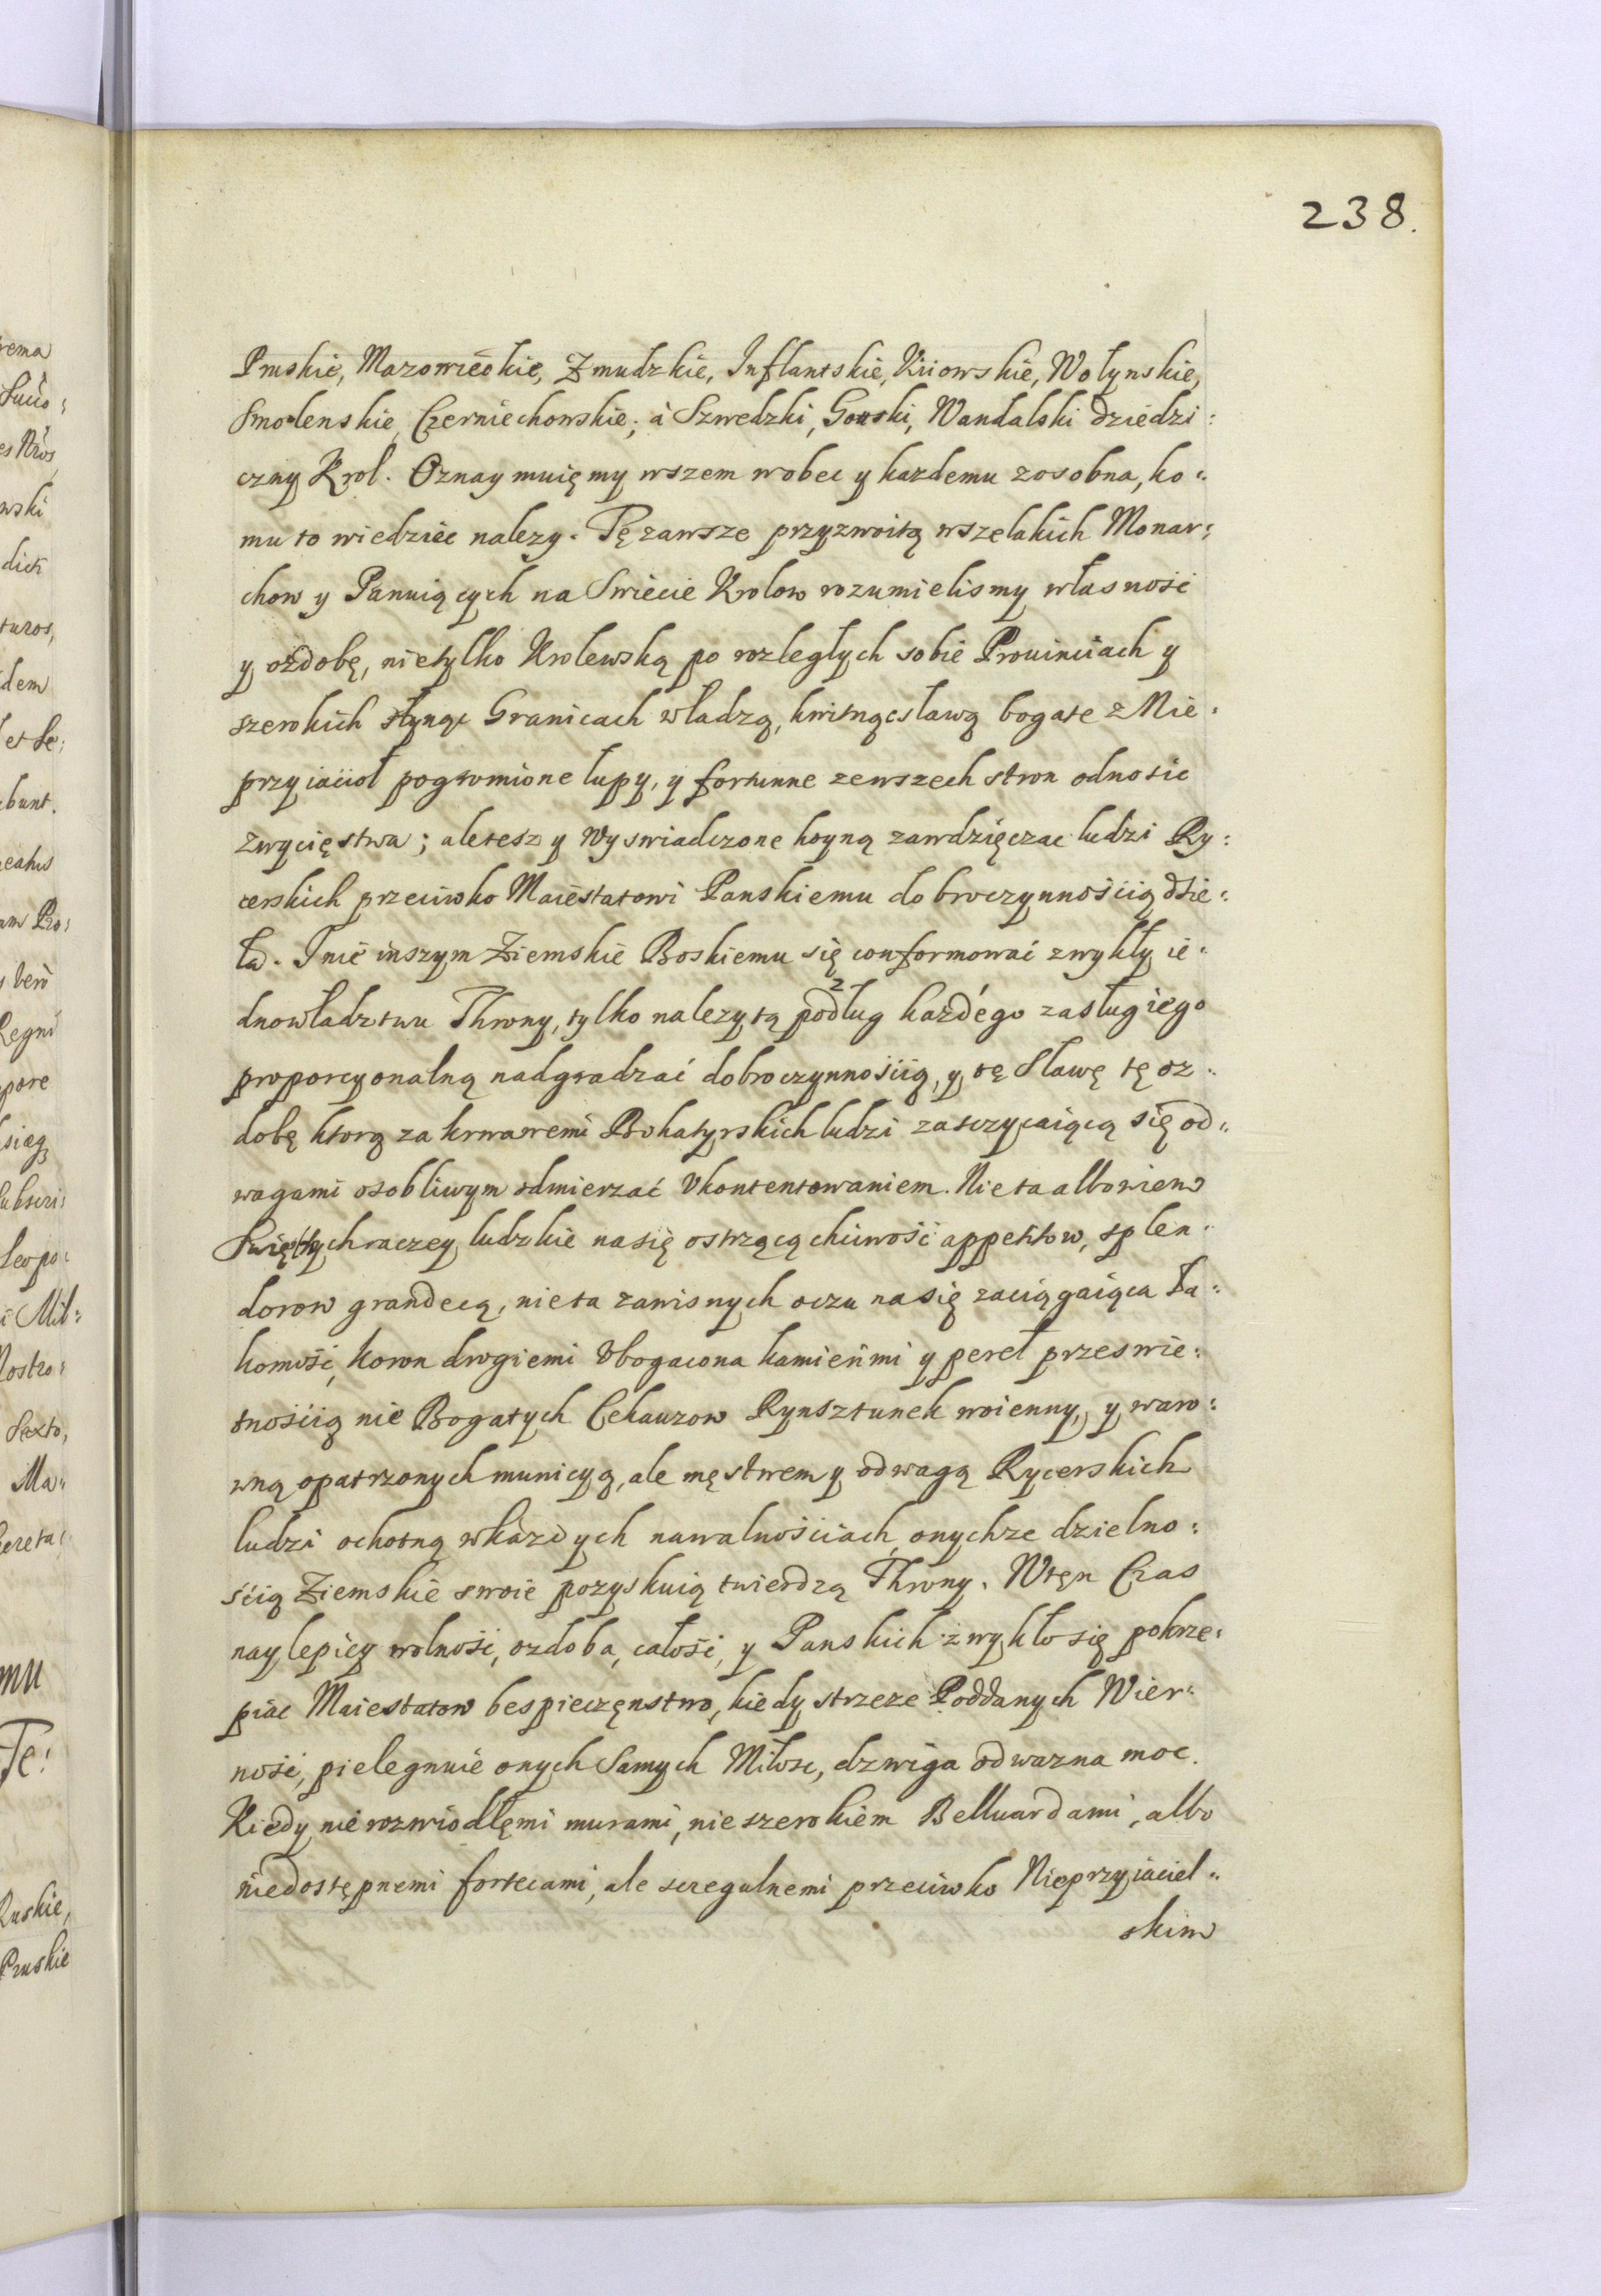 238.
Pruskie, Mazowieckie, Zmudzkie, Inflantskie, Kiiowskie, Wołynskie,
Smolenskie, Czerniechowskie; à Szwedzki, Gottski, Wandalski dziedzi:
czny Krol. Oznaymuięmy wszem wobec y kazdemu zosobna, ko:
mu to wiedziec nalezy. Tę zawsze przyzwoitą wszelakich Monar:
chow y Panuiących na Swiecie Krolow rozumielismy własność
y ozdobę, nietylko Krolewską po rozległych sobie Prouinciach y
szerokich słynąc Granicach władzą, kwitnąc sławą bogate z Nie:
przyiacioł pogromione łupy, y fortunne zewszech stron odnosic
Zwycięstwa; aletesz y Wyswiadczone hoyną zawdzięczac ludzi Ry:
cerskich przeciwko Maiestatowi Panskiemu dobroczynnością dzie:
ła. I nie inszym Ziemskie Boskiemu się conformować zwykły ie:
dnowładztwu Throny, tylko nalezytą podług każdego zasług iego
proporcyonalną nadgradzać dobroczynnością, y tę Sławę tę oz:
dobę ktorą za krwawemi Bohatyrskich ludzi zasczycaiącą się od:
wagami osobliwym odmierzać Vkontentowaniem. Nie ta albowiem
Swiętych raczey ludzkie na się ostrzącą chciwość appetitow, splen:
dorow grandecą, nie ta zawisnych oczu na się zaciągaiąca Ła:
komość, koron drogiemi Vbogacona kamieńmi y pereł przeswie:
tnością nie Bogatych Cekauzow Rynsztunek woienny, y waro:
wną opatrzonych municyą, ale męstwem y odwagą Rycerskich
ludzi ochotną wkażdych nawalnościach, onychze dzielno:
ścią Ziemskie swoie pozyskuią twierdzą Throny. Wtęn Czas
naylepiey wolność, ozdoba, całość, y Panskich zwykło się pokrze:
piac Maiestatow bespieczęnstwo, kiedy strzeze Poddanych Wier:
ność, pielegnuie onych Samych Miłosc, dzwiga odwazna moc.
Kiedy nie rozwiodłęmi murami, nie szerokiem Belluardami, albo
niedostępnemi fortecami, ale scregulnemi przeciwko Nieprzyiaciel:
skim